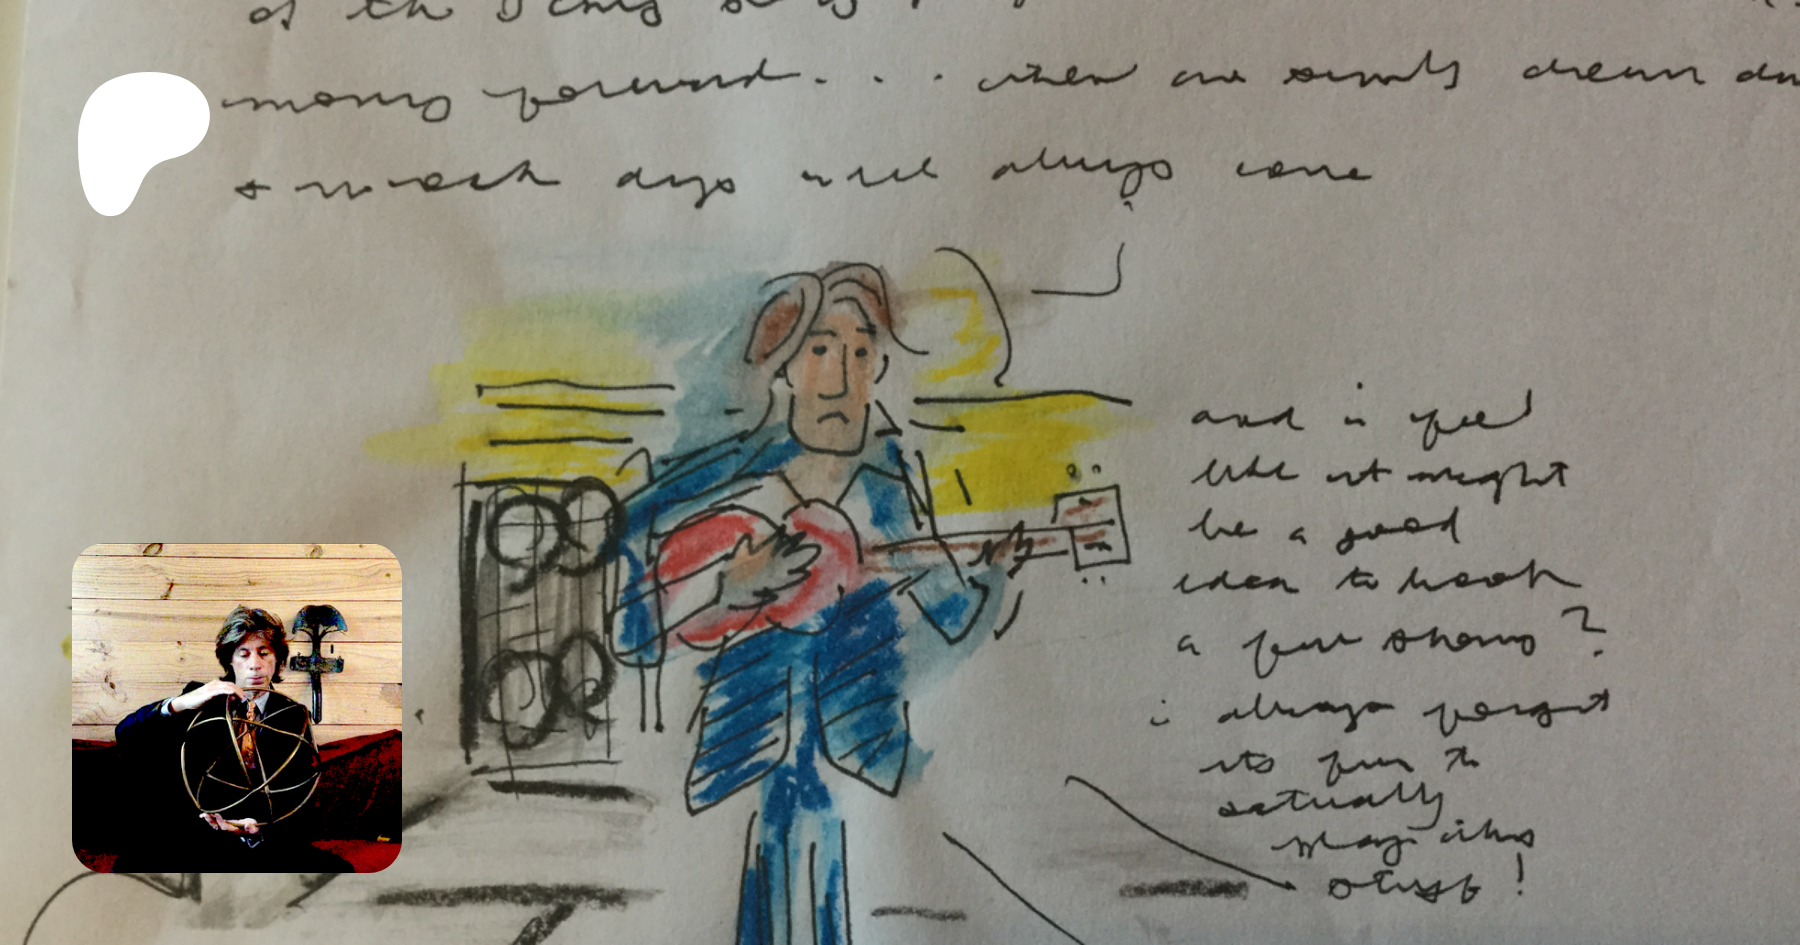 of the
moving forward... when one simply
days will always come
and i feel
like it might
be a good
idea to book
a few shows?
i always forget
its fun to
actually
play this
stuff!